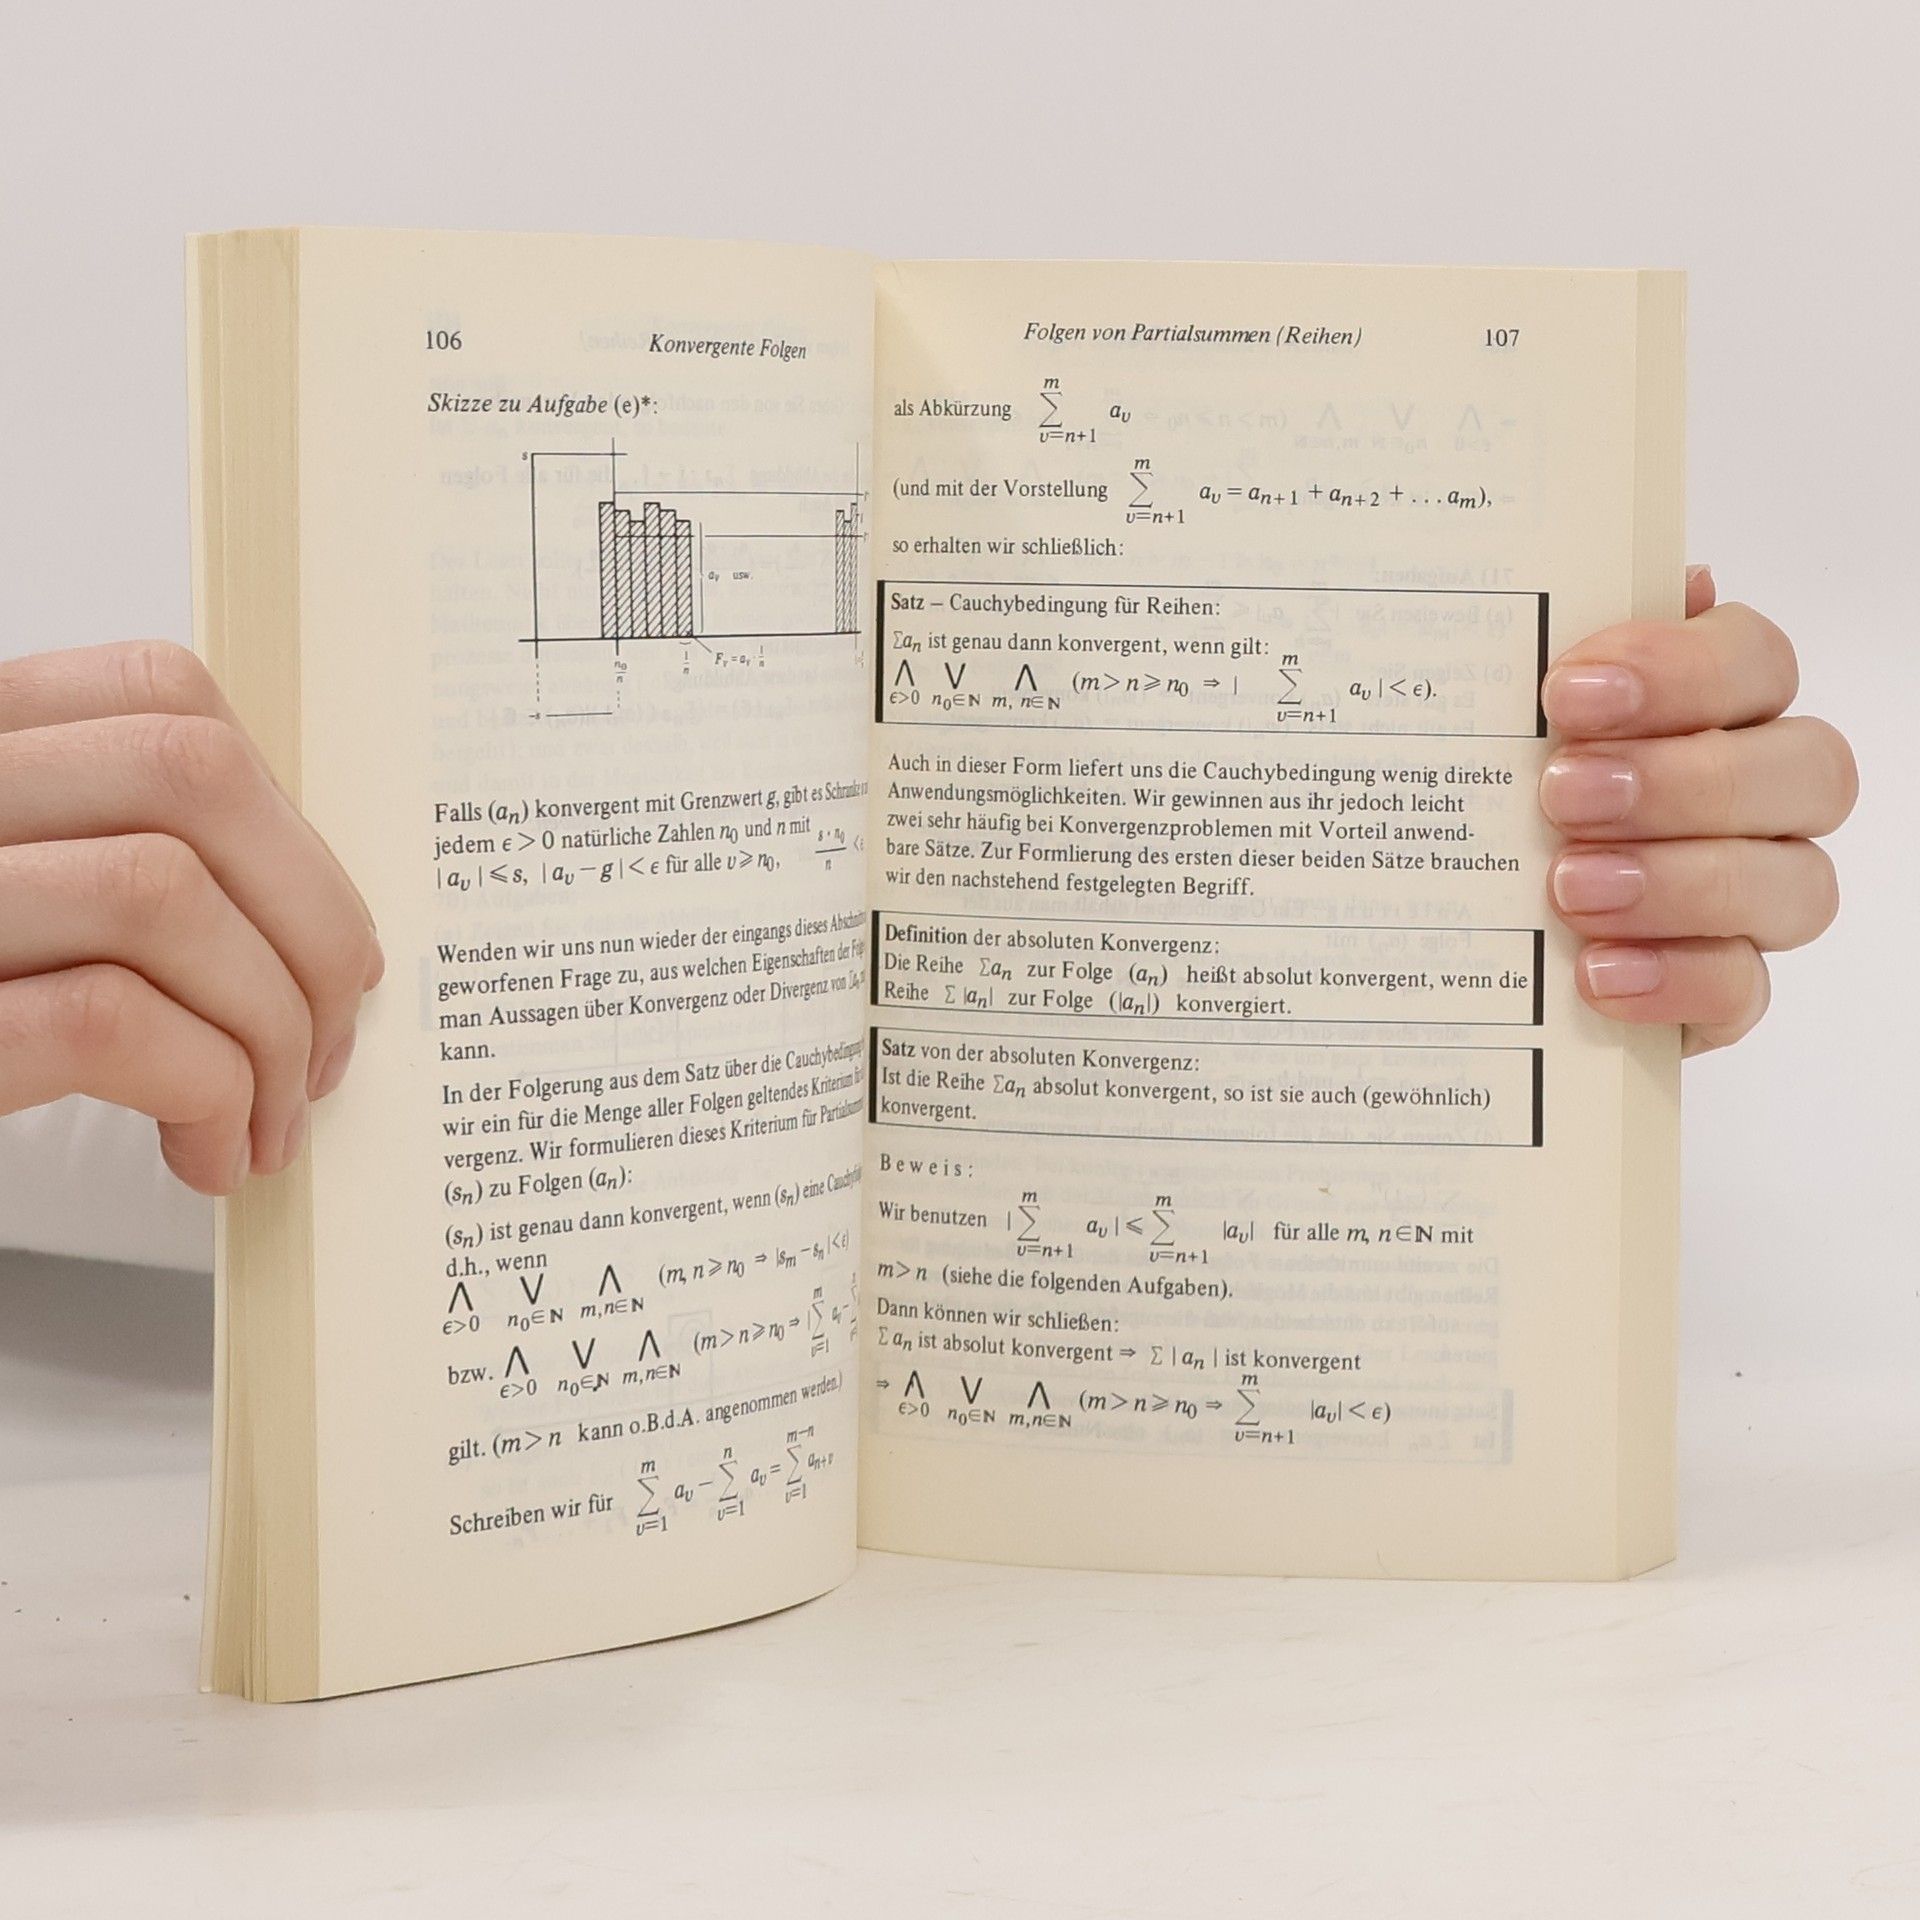 106 Konvergente Folgen
Skizze zu Aufgabe (e)*:
s
aᵥ usw.
n₀/n
1/n
Fᵥ = aᵥ · 1/n
-s
Falls (aₙ) konvergent mit Grenzwert g, gibt es
jedem ϵ > 0 natürliche Zahlen n₀ und n mit s · n₀/n <
|aᵥ| ⩽ s, |aᵥ − g| < ϵ für alle υ ⩾ n₀,
Wenden wir uns nun wieder der eingangs dieses
geworfenen Frage zu, aus welchen Eigenschaften der
man Aussagen über Konvergenz oder Divergenz von
kann.
In der Folgerung aus dem Satz über die
wir ein für die Menge aller Folgen geltendes Kriterium
vergenz. Wir formulieren dieses Kriterium für
(sₙ) zu Folgen (aₙ):
(sₙ) ist genau dann konvergent, wenn (sₙ) eine
d.h., wenn
⋀ ⋁ ⋀ (m, n ⩾ n₀ ⇒ |sₘ − sₙ| < ϵ)
ϵ>0 n₀∈ℕ m,n∈ℕ
bzw. ⋀ ⋁ ⋀ (m > n ⩾ n₀ ⇒ | ∑ᵐ aᵥ −
ϵ>0 n₀∈ℕ m,n∈ℕ υ=1
gilt. (m > n kann o.B.d.A. angenommen werden.)
m n m−n
Schreiben wir für ∑ aᵥ − ∑ aᵥ = ∑ aₙ₊ᵥ
υ=1 υ=1 υ=1
Folgen von Partialsummen (Reihen) 107
m
als Abkürzung ∑ aᵥ
υ=n+1
m
(und mit der Vorstellung ∑ aᵥ = aₙ₊₁ + aₙ₊₂ + . . . aₘ),
υ=n+1
so erhalten wir schließlich:
Satz – Cauchybedingung für Reihen:
Σaₙ ist genau dann konvergent, wenn gilt:
m
⋀ ⋁ ⋀ (m > n ⩾ n₀ ⇒ | ∑ aᵥ | < ϵ).
ϵ>0 n₀∈ℕ m, n∈ℕ υ=n+1
Auch in dieser Form liefert uns die Cauchybedingung wenig direkte
Anwendungsmöglichkeiten. Wir gewinnen aus ihr jedoch leicht
zwei sehr häufig bei Konvergenzproblemen mit Vorteil anwend-
bare Sätze. Zur Formlierung des ersten dieser beiden Sätze brauchen
wir den nachstehend festgelegten Begriff.
Definition der absoluten Konvergenz:
Die Reihe Σaₙ zur Folge (aₙ) heißt absolut konvergent, wenn die
Reihe Σ |aₙ| zur Folge (|aₙ|) konvergiert.
Satz von der absoluten Konvergenz:
Ist die Reihe Σaₙ absolut konvergent, so ist sie auch (gewöhnlich)
konvergent.
Beweis:
m m
Wir benutzen | ∑ aᵥ | ⩽ ∑ |aᵥ| für alle m, n∈ℕ mit
υ=n+1 υ=n+1
m > n (siehe die folgenden Aufgaben).
Dann können wir schließen:
Σ aₙ ist absolut konvergent ⇒ Σ | aₙ | ist konvergent
m
⇒ ⋀ ⋁ ⋀ (m > n ⩾ n₀ ⇒ ∑ |aᵥ| < ϵ)
ϵ>0 n₀∈ℕ m,n∈ℕ υ=n+1